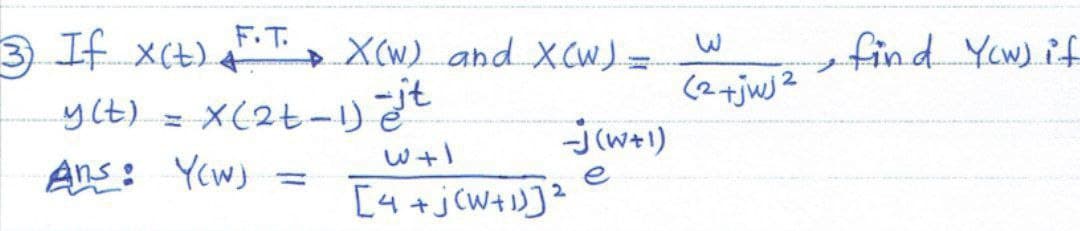 ③ If x(t) F.T. ↔ X(w) and X(w) = w / (2+jw)², find Y(w) if
y(t) = x(2t-1) e^-jt
Ans: Y(w) = w+1 / [4+j(w+1)]² e^-j(w+1)